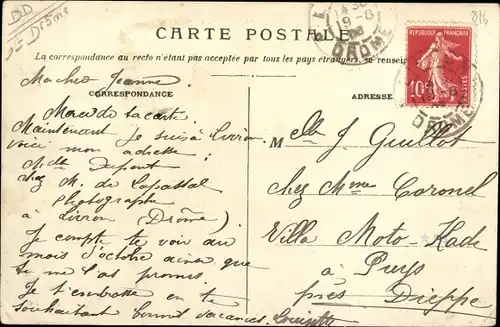 DD
Drôme
816
CARTE POSTALE
La correspondance au recto n'étant pas acceptée par tous les pays étrangers, se rensei
CORRESPONDANCE
ADRESSE
RÉPUBLIQUE FRANÇAISE
10
POSTES
19-8
DROME
DROME
Ma chère Jeanne,
Merci de ta carte
Maintenant je suis à Livron
voici mon adresse :
Mlle Dupont
chez M. de
Photographe
à Livron (Drôme)
Je compte te voir au
mois d'octobre ainsi que
tu me l'as promis
Je t'embrasse en te
souhaitant bonnes vacances.
Mlle J Guillot
chez Mme Coronel
Villa Moto-Kade
à Puys
près Dieppe